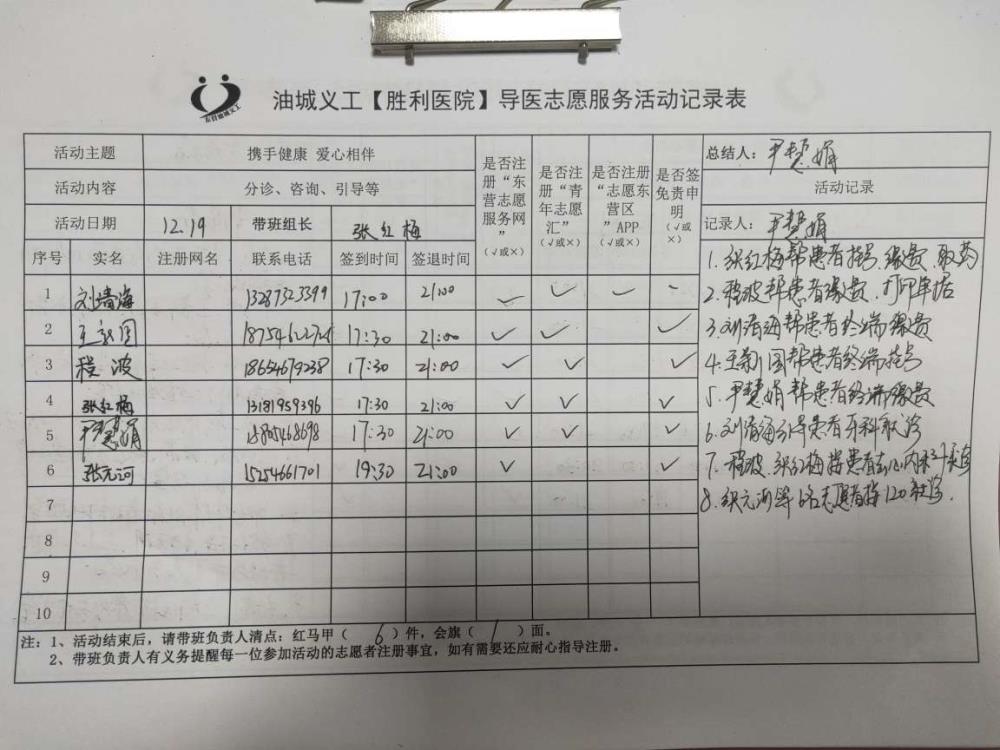 东营油城义工
油城义工【胜利医院】导医志愿服务活动记录表
活动主题 携手健康 爱心相伴
活动内容 分诊、咨询、引导等
活动日期 12.19 带班组长 张红梅
是否注册“东营志愿服务网”(√或×)
是否注册“青年志愿汇”(√或×)
是否注册“志愿东营区”APP(√或×)
是否签免责申明(√或×)
总结人：尹慧娟
活动记录
记录人：尹慧娟
序号 实名 注册网名 联系电话 签到时间 签退时间
1 刘清海 13287323399 17:00 21:00 ✓ ✓ ✓ -
2 王新国 17:30 21:00 ✓ ✓ ✓
3 程波 18654679238 17:30 21:00 ✓ ✓ ✓
4 张红梅 13181959396 17:30 21:00 ✓ ✓ ✓
5 尹慧娟 17:30 21:00 ✓ ✓ ✓
6 张元河 15254661701 19:30 21:00 ✓ ✓
7
8
9
10
1.张红梅帮患者挂号、缴费、取药
2.程波帮患者缴费、打印单据
3.刘清海帮患者终端缴费
4.王新国帮患者终端挂号
5.尹慧娟帮患者终端缴费
6.刘清海引导患者牙科就诊
7.程波、张红梅
8.张元河等6名志愿者接120就诊.
注：1、活动结束后，请带班负责人清点：红马甲（6）件，会旗（1）面。
2、带班负责人有义务提醒每一位参加活动的志愿者注册事宜，如有需要还应耐心指导注册。